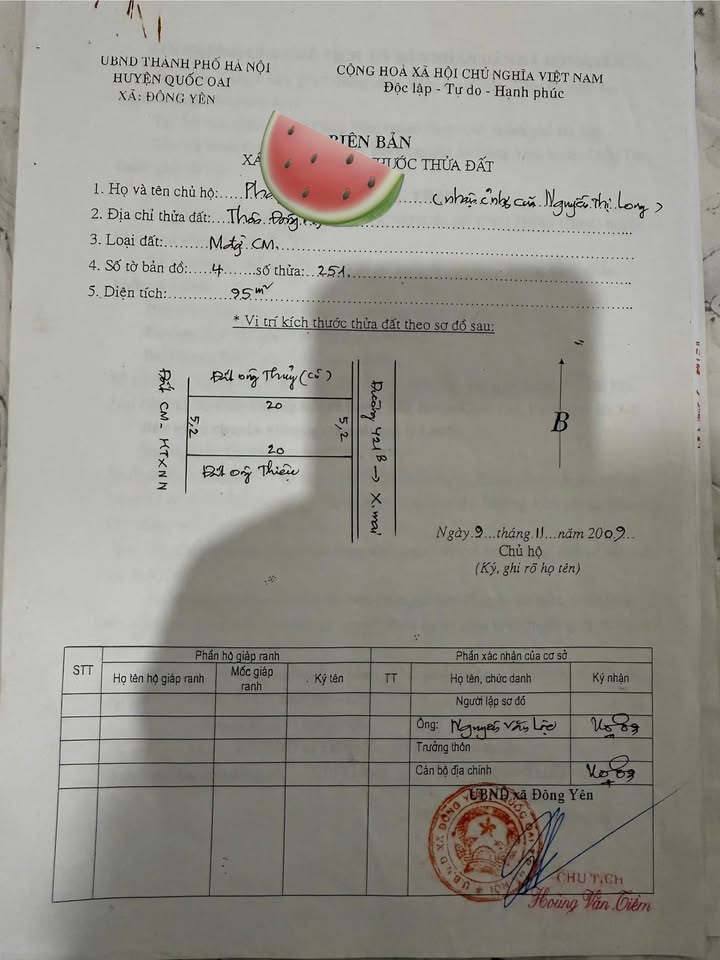 UBND THÀNH PHỐ HÀ NỘI
HUYỆN QUỐC OAI
XÃ: ĐÔNG YÊN
CỘNG HOÀ XÃ HỘI CHỦ NGHĨA VIỆT NAM
Độc lập - Tự do - Hạnh phúc
BIÊN BẢN
XÁ THƯỚC THỬA ĐẤT
1. Họ và tên chủ hộ: Nguyễn Thị Long)
2. Địa chỉ thửa đất: Thôn Đông
3. Loại đất: CM.
4. Số tờ bản đồ: 4 số thửa: 251.
5. Diện tích: 95m²
* Vị trí kích thước thửa đất theo sơ đồ sau:
Đất ông Thuỷ (cũ)
20
5,2
5,2
20
Đất ông Thiệu
Đất CM - HTXNN
Đường 421B → X.mai
B
Ngày 9 tháng 11 năm 2009
Chủ hộ
(Ký, ghi rõ họ tên)
STT Phần hộ giáp ranh Phần xác nhận của cơ sở
Họ tên hộ giáp ranh Mốc giáp ranh Ký tên TT Họ tên, chức danh Ký nhận
Người lập sơ đồ
Ông: Nguyễn Văn Lộc
Trưởng thôn
Cán bộ địa chính
UBND xã Đông Yên
CHỦ TỊCH
Hoàng Văn Tiềm